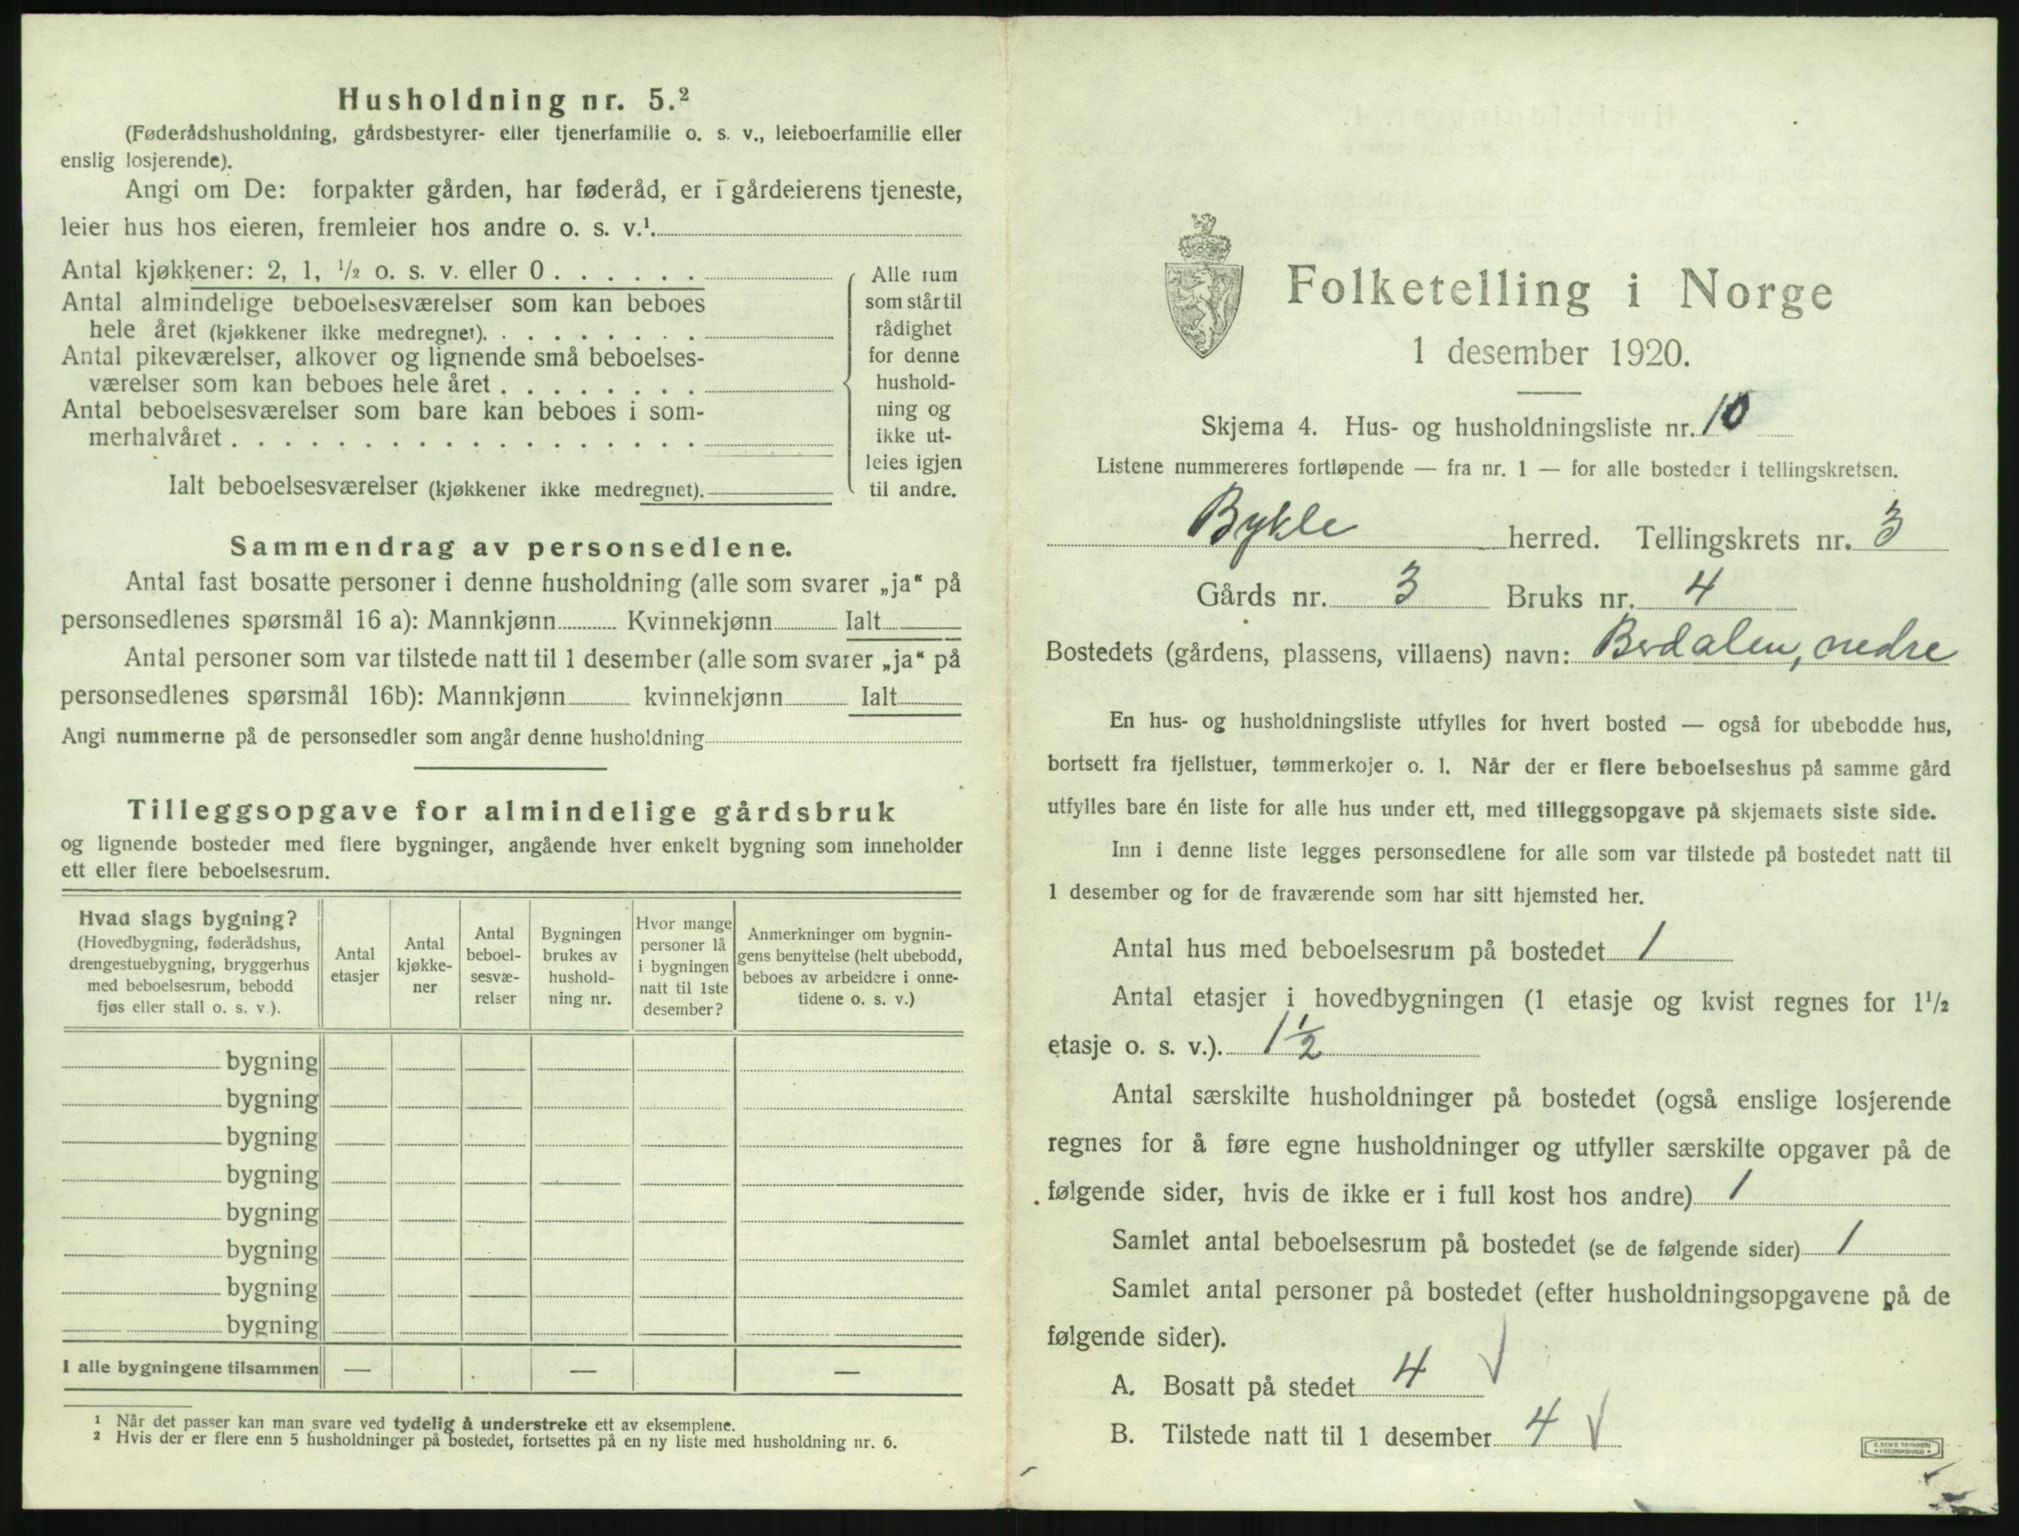 Husholdning nr. 5.²
(Føderådshusholdning, gårdsbestyrer- eller tjenerfamilie o. s. v., leieboerfamilie eller
enslig losjerende).
Angi om De: forpakter gården, har føderåd, er i gårdeierens tjeneste,
leier hus hos eieren, fremleier hos andre o. s. v.¹.
Antal kjøkkener: 2, 1, ½ o. s. v. eller 0 . . . . . .
Antal almindelige beboelsesværelser som kan beboes
hele året (kjøkkener ikke medregnet). . . . . . . . .
Antal pikeværelser, alkover og lignende små beboelses-
værelser som kan beboes hele året . . . . . . . .
Antal beboelsesværelser som bare kan beboes i som-
merhalvåret . . . . . . . . . . . . . . . . . .
Ialt beboelsesværelser (kjøkkener ikke medregnet).
Alle rum
som står til
rådighet
for denne
hushold-
ning og
ikke ut-
leies igjen
til andre.
Sammendrag av personsedlene.
Antal fast bosatte personer i denne husholdning (alle som svarer „ja“ på
personsedlenes spørsmål 16 a): Mannkjønn Kvinnekjønn Ialt
Antal personer som var tilstede natt til 1 desember (alle som svarer „ja“ på
personsedlenes spørsmål 16b): Mannkjønn kvinnekjønn Ialt
Angi nummerne på de personsedler som angår denne husholdning
Tilleggsopgave for almindelige gårdsbruk
og lignende bosteder med flere bygninger, angående hver enkelt bygning som inneholder
ett eller flere beboelsesrum.
Hvad slags bygning?
(Hovedbygning, føderådshus,
drengestuebygning, bryggerhus
med beboelsesrum, bebodd
fjøs eller stall o. s. v.).
Antal
etasjer
Antal
kjøkke-
ner
Antal
beboel-
sesvæ-
relser
Bygningen
brukes av
hushold-
ning nr.
Hvor mange
personer lå
i bygningen
natt til 1ste
desember?
Anmerkninger om bygnin-
gens benyttelse (helt ubebodd,
beboes av arbeidere i onne-
tidene o. s. v.)
bygning
bygning
bygning
bygning
bygning
bygning
bygning
bygning
I alle bygningene tilsammen — — —
¹ Når det passer kan man svare ved tydelig å understreke ett av eksemplene.
² Hvis der er flere enn 5 husholdninger på bostedet, fortsettes på en ny liste med husholdning nr. 6.
Folketelling i Norge
1 desember 1920.
Skjema 4. Hus- og husholdningsliste nr. 10
Listene nummereres fortløpende — fra nr. 1 — for alle bosteder i tellingskretsen.
Bykle herred. Tellingskrets nr. 3
Gårds nr. 3 Bruks nr. 4
Bostedets (gårdens, plassens, villaens) navn: Berdalen, nedre
En hus- og husholdningsliste utfylles for hvert bosted — også for ubebodde hus,
bortsett fra fjellstuer, tømmerkojer o. l. Når der er flere beboelseshus på samme gård
utfylles bare én liste for alle hus under ett, med tilleggsopgave på skjemaets siste side.
Inn i denne liste legges personsedlene for alle som var tilstede på bostedet natt til
1 desember og for de fraværende som har sitt hjemsted her.
Antal hus med beboelsesrum på bostedet 1
Antal etasjer i hovedbygningen (1 etasje og kvist regnes for 1½
etasje o. s. v.). 1½
Antal særskilte husholdninger på bostedet (også enslige losjerende
regnes for å føre egne husholdninger og utfyller særskilte opgaver på de
følgende sider, hvis de ikke er i full kost hos andre) 1
Samlet antal beboelsesrum på bostedet (se de følgende sider) 1
Samlet antal personer på bostedet (efter husholdningsopgavene på de
følgende sider).
A. Bosatt på stedet 4 √
B. Tilstede natt til 1 desember 4 √